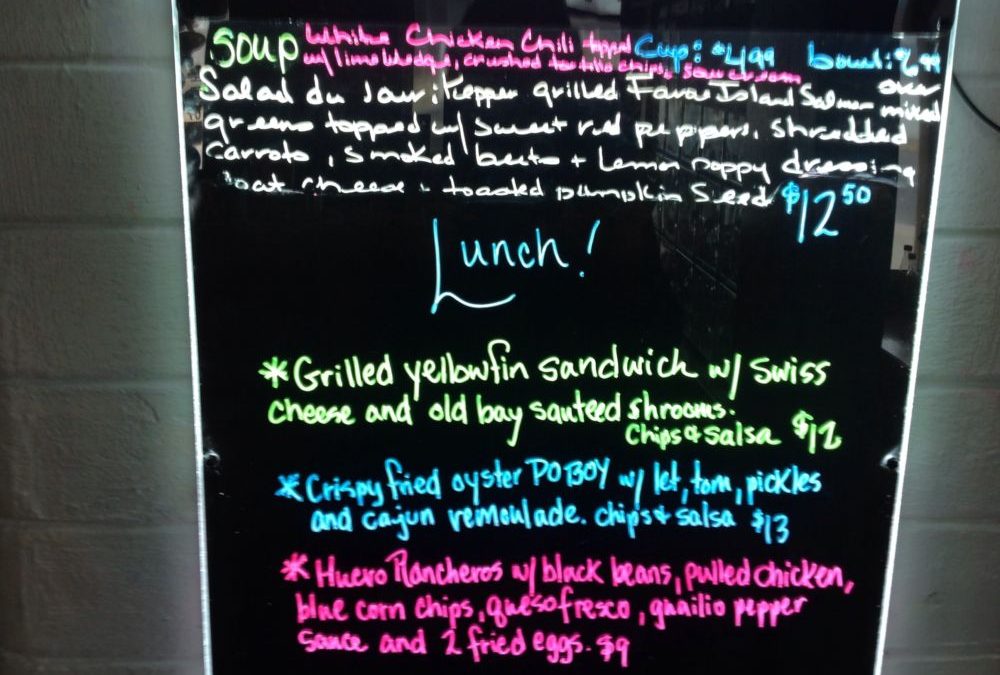 SOUP White Chicken Chili topped Cup: $4.99 bowl: 6.99
w/ lime wedge, crushed tortilla chips, sour cream
Salad du Jour: Pepper grilled Faroe Island Salmon over mixed
greens topped w/ sweet red peppers, shredded
carrots, smoked beets + Lemon poppy dressing
Goat cheese + toasted pumpkin seed $12.50
Lunch!
*Grilled yellowfin sandwich w/ Swiss
cheese and old bay sauteed shrooms.
Chips & salsa $12
*Crispy fried oyster PO BOY w/ let, tom, pickles
and cajun remoulade. chips & salsa $13
*Huevo Rancheros w/ black beans, pulled chicken,
blue corn chips, queso fresco, guailio pepper
sauce and 2 fried eggs. $9